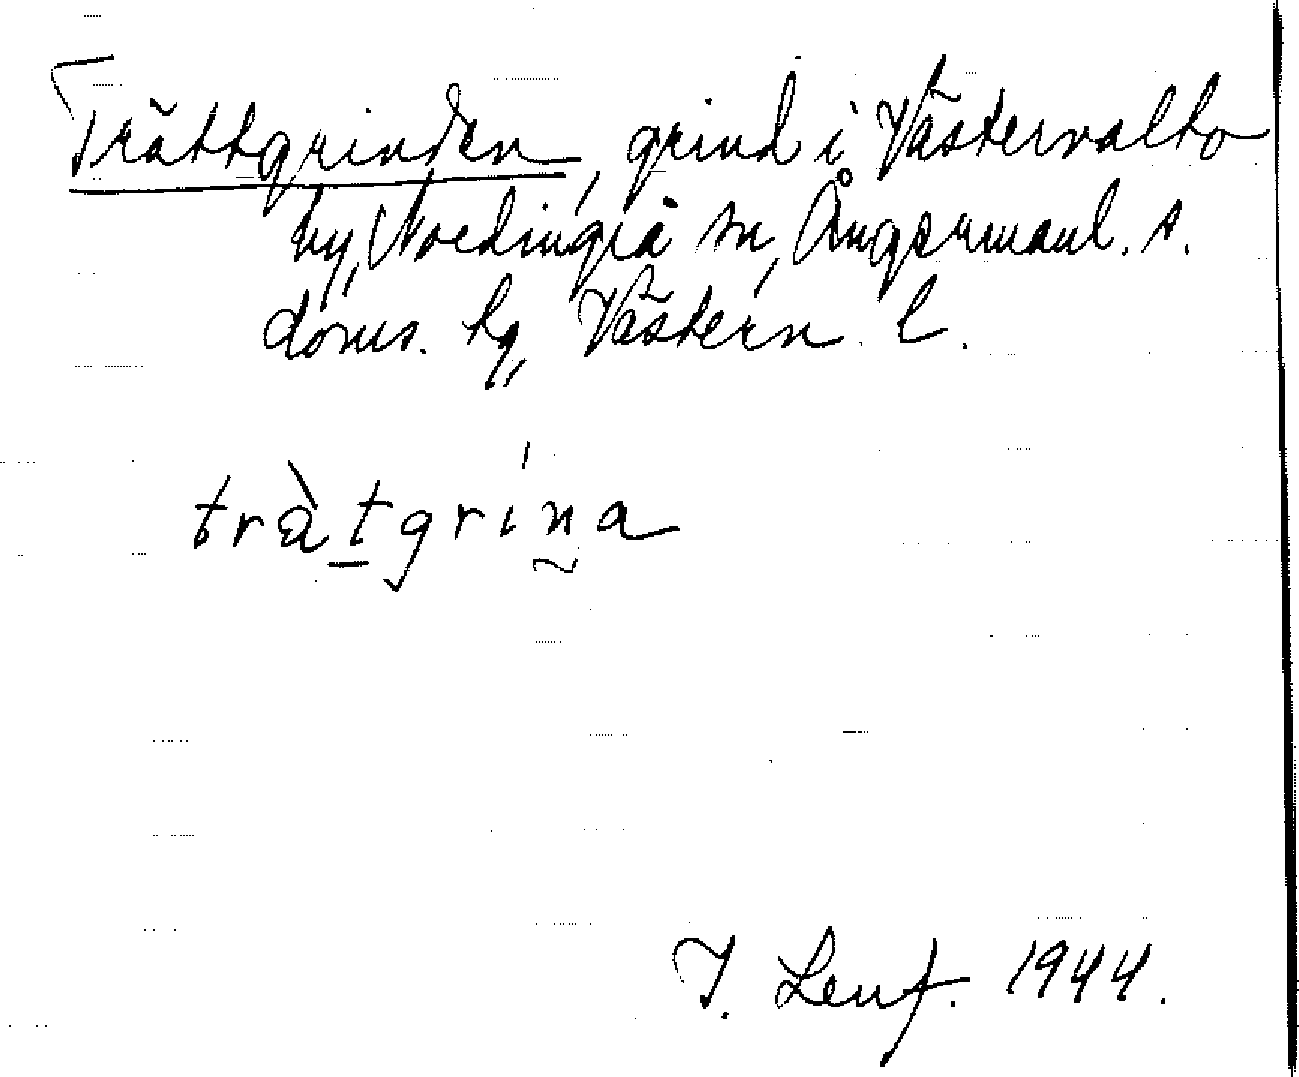 Trättgrinden, grind i Västervalto
by, Nordingrå sn, Ångermanl. s.
doms. hg, Västern. l.
tràtgrina
J. Lenf. 1944.